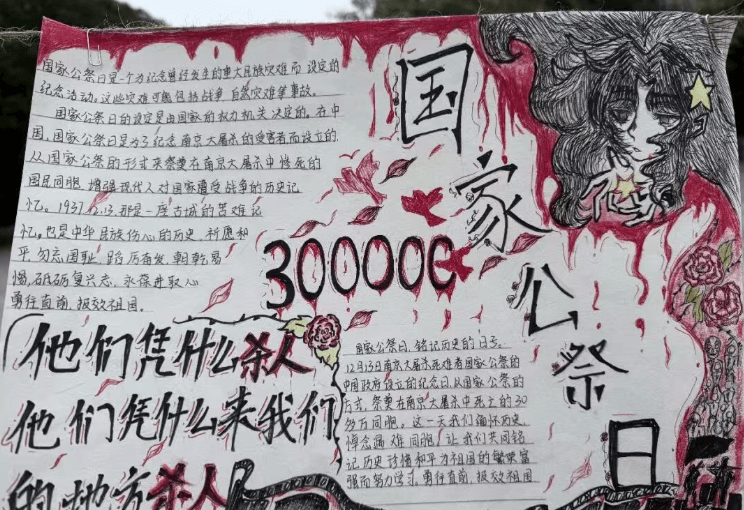 国家公祭日是一个为纪念曾经发生的重大民族灾难而设定的
纪念活动。这些灾难可能包括战争、自然灾难等事故。
国家公祭日的设定是由国家的权力机关决定的。在中
国，国家公祭日是为了纪念南京大屠杀的受害者而设立的，
以国家公祭的形式来祭奠在南京大屠杀中惨死的
国民同胞，增强现代人对国家遭受战争的历史记
忆。1937.12.13，那是一座古城的苦难记
忆。也是中华民族伤心的历史，祈愿和
平，勿忘国耻，踔厉奋发，朝乾夕
惕，砥砺复兴志，永葆进取心
勇往直前，报效祖国。
国
家
公
祭
日
300000
他们凭什么杀人
他们凭什么来我们
的地方杀人
国家公祭日，铭记历史的日子。
12月13日南京大屠杀死难者国家公祭的
中国政府设立的纪念日，以国家公祭的
方式，祭奠在南京大屠杀中死亡的30
多万同胞。这一天我们缅怀历史，
悼念遇难同胞，让我们共同铭
记历史珍惜和平为祖国的繁荣富
强而努力学习，勇往直前，报效祖国